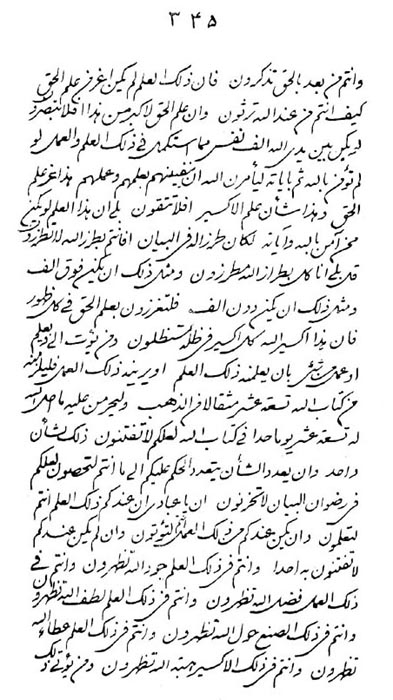 ۳۴۵
وانتم من بعد بالحق تذكرون فان ذلك العلم لم يكن اعز من علم الحق
كيف انتم من عند الله ترثون وان علم الحق لاكبر من هذا افلا تبصرون
لو يكن بين يدى الله الف نفس مما استكمل فى ذلك العلم والعمل لو
لم تؤمن بالله ثم باياته ليأمرن الله ان بعلمهم وعملهم هذا عز علم
الحق وهذا شأن علم الاكسير افلا تتقون بلى ان هذا العلم لو يكن
من امن بالله واياته لكان طرز الله فى البيان افانتم بطرز الله لا تطرزون
قل بلى انا كل بطراز الله مطرزون ومثل ذلك ان يكن فوق الف
ومثل ذلك ان يكن دون الف فلتعززن بعلم الحق فى كل ظهور
فان هذا اكسير الله كل اكسير فى ظله تستظلون ومن يؤت الى ذى علم
او عمل من شىء بان يعلمنه ذلك العلم او يرينه ذلك العمل
من كتاب الله تسعة عشر مثقالا من الذهب وليحرمن عليه ما حل الله
له تسعة عشر يوما حدا فى كتاب الله لعلكم لا تفتنون ذلك لشأن
واحد وان يعدد الشأن يتعدد الحكم عليكم الى ما انتم لتحصون لعلكم
فى رضوان البيان لا تحزنون ان يا عبادى ان عندكم ذلك العلم انتم
لتعلمون وان يكن عندكم من ذلك العمل لتؤتون وان لم يكن عندكم
لا تفتنون به احدا وانتم فى ذلك العلم جود الله تظهرون وانتم فى
ذلك العمل فضل الله تظهرون وانتم فى ذلك العلم لطف الله تظهرون
وانتم فى ذلك الصنع حول الله تظهرون وانتم فى ذلك العلم عطاء الله
تظهرون وانتم فى ذلك الاكسير هبة الله تظهرون ومن يؤتى ذلك